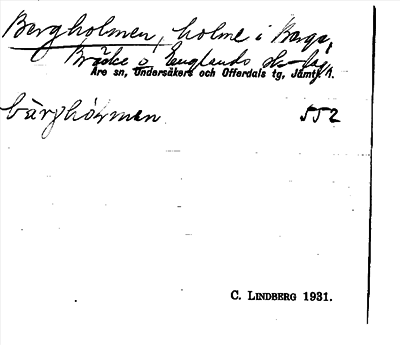 Bergholmen, holme i Berge,
Bräcke o Englunds sk-lag
Åre sn, Undersåkers och Offerdals tg, Jämtl.
bärjhólmen 552
C. LINDBERG 1931.